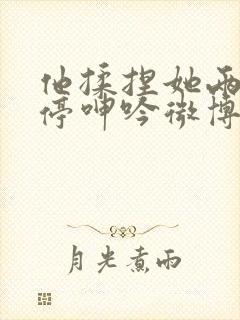 他揉捏她两
停呻吟微博
月光煮雨